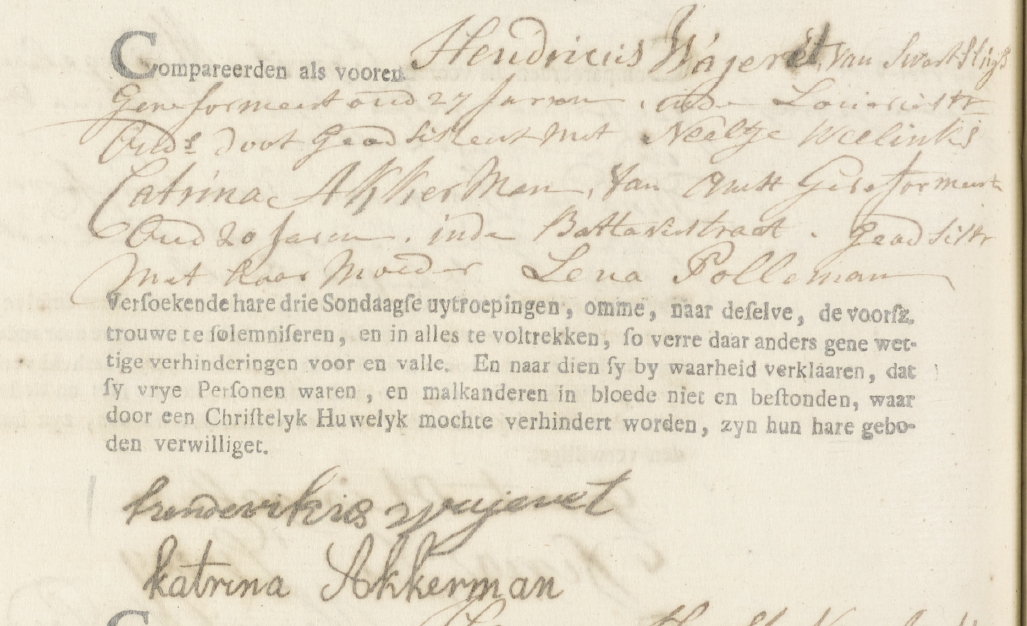 Compareerden als vooren Hendricus Wajeret, van Swartsluys
Gereformeert oud 27 Jaren, inde Lauriestr
Oud.s doot Geadsisteert Met Neeltje Weelinks
Catrina Akkerman, Van Amst Gereformeert
Oud 20 Jaren. inde Battaviestraat. Geadsistr
Met haar Moeder Lena Polleman
Versoekende hare drie Sondaagse uytroepingen, omme, naar deselve, de voorsz.
trouwe te solemniseren, en in alles te voltrekken, so verre daar anders gene wet-
tige verhinderingen voor en valle. En naar dien sy by waarheid verklaaren, dat
sy vrye Personen waren, en malkanderen in bloede niet en bestonden, waar
door een Christelyk Huwelyk mochte verhindert worden, zyn hun hare gebo-
den verwilliget.
henderikus wajeret
katrina Akkerman